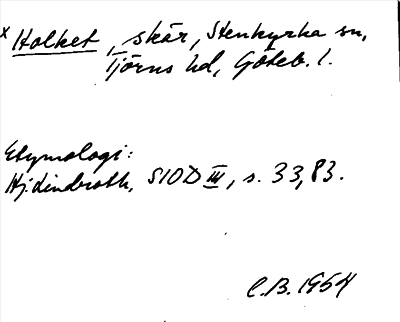 x Holket, skär, Stenkyrka sn,
Tjörns hd, Göteb. l.
Etymologi:
Hj. Lindroth, SIOD III, s. 33, 83.
C.B. 1954